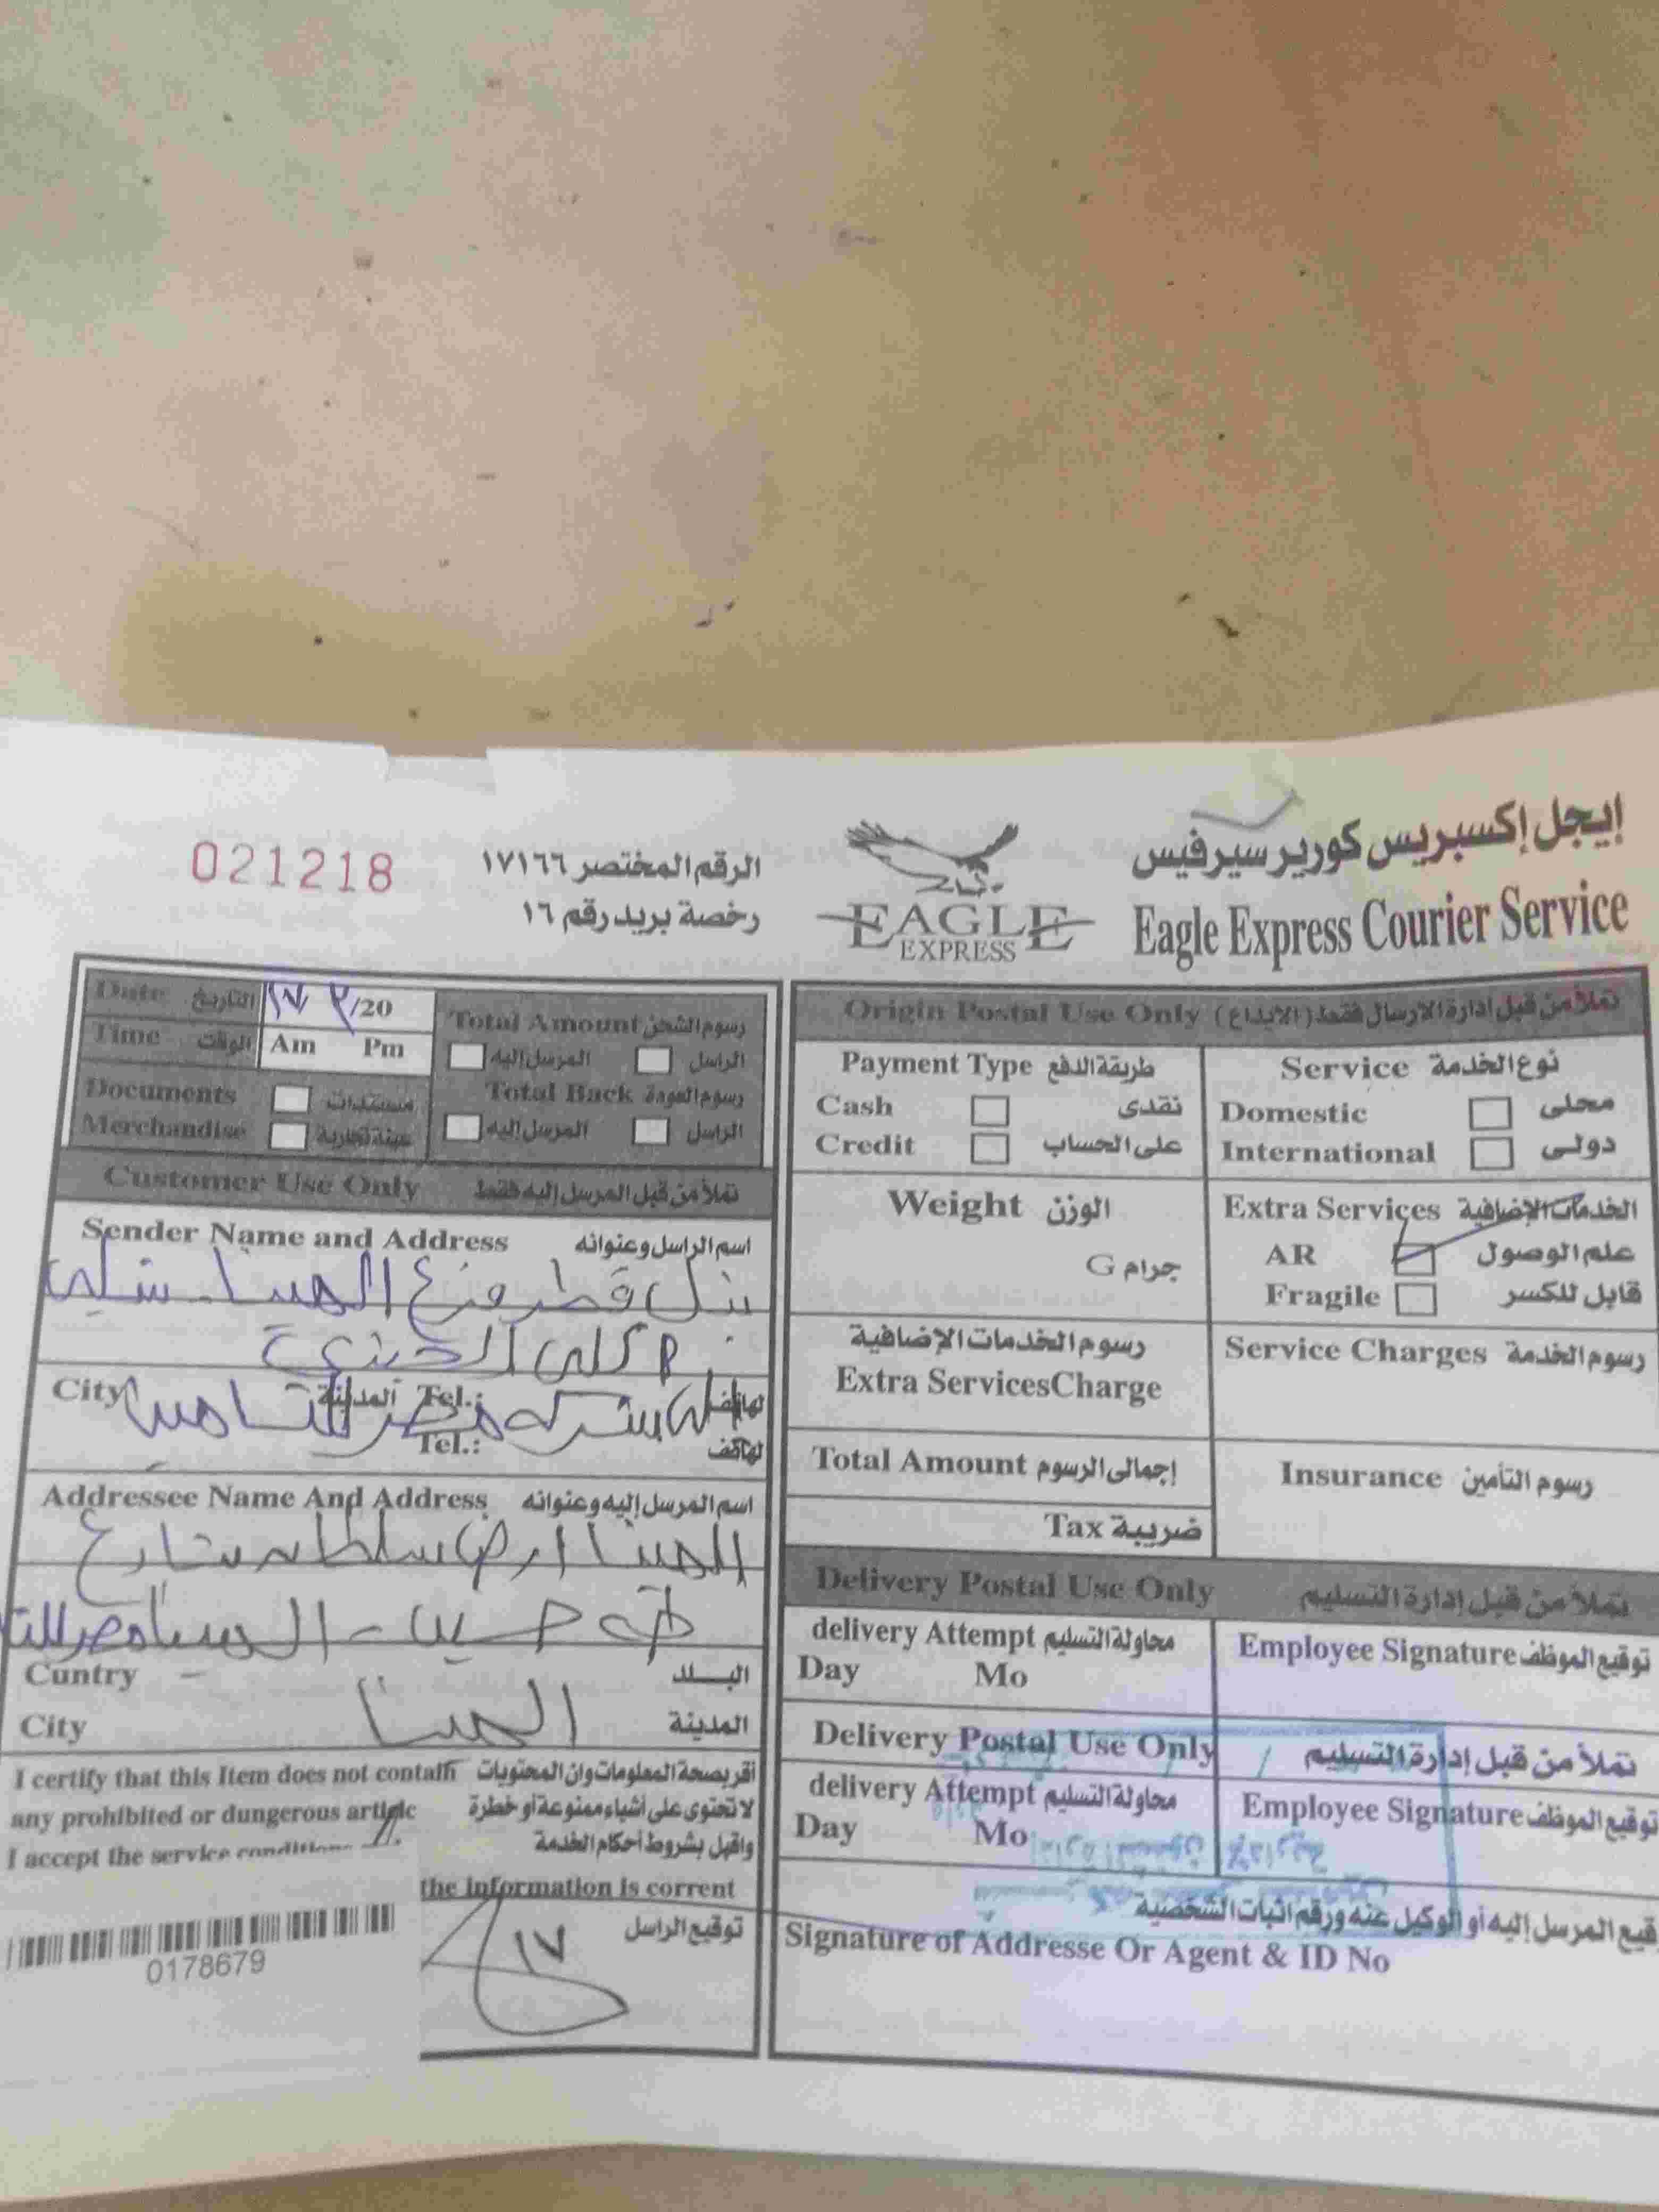 إيجل إكسبريس كورير سيرفيس
Eagle Express Courier Service
EAGLE
EXPRESS
الرقم المختصر ١٧١٦٦
رخصة بريد رقم ١٦
021218
Date التاريخ /20
Time الوقت Am Pm
Documents مستندات
Merchandise عينة تجارية
Total Amount رسوم الشحن
المرسل إليه الراسل
Total Back رسوم العودة
المرسل إليه الراسل
Customer Use Only تملأ من قبل المرسل إليه فقط
Sender Name and Address اسم الراسل وعنوانه
بنك قطر فرع المنيا شلبى
City المدينة Tel.: لهاتف
شركة مصر للتامين
Tel.: لهاتف
Addressee Name And Address اسم المرسل إليه وعنوانه
المنيا ارض سلطان شارع
طه حسين - المنيا مصر للتا
Cuntry البلد
City المدينة
المنيا
I certify that this Item does not contain أقر بصحة المعلومات وان المحتويات
any prohibited or dungerous article لا تحتوى على أشياء ممنوعة أو خطرة
I accept the service conditions واقبل بشروط أحكام الخدمة
the information is corrent
توقيع الراسل
0178679
Origin Postal Use Only تملأ من قبل إدارة الارسال فقط (الابداع)
Payment Type طريقة الدفع
Cash نقدى
Credit على الحساب
Service نوع الخدمة
Domestic محلى
International دولى
Weight الوزن
جرام G
Extra Services الخدمات الإضافية
AR علم الوصول
Fragile قابل للكسر
رسوم الخدمات الإضافية
Extra ServicesCharge
Service Charges رسوم الخدمة
Total Amount إجمالى الرسوم
Insurance رسوم التأمين
Tax ضريبة
Delivery Postal Use Only تملأ من قبل إدارة التسليم
delivery Attempt محاولة التسليم
Day Mo
Employee Signature توقيع الموظف
Delivery Postal Use Only تملأ من قبل إدارة التسليم
delivery Attempt محاولة التسليم
Day Mo
Employee Signature توقيع الموظف
قيع المرسل إليه أو الوكيل عنه ورقم اثبات الشخصية
Signature of Addresse Or Agent & ID No